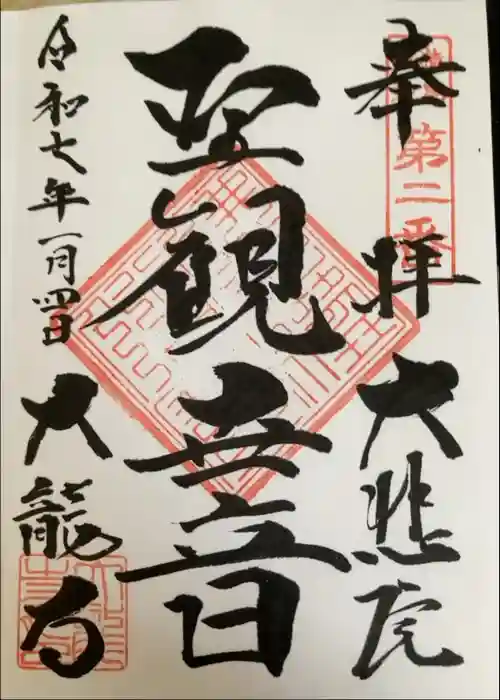 奉拝 大悲
第二番
聖観世音
令和七年一月四日 大
寺